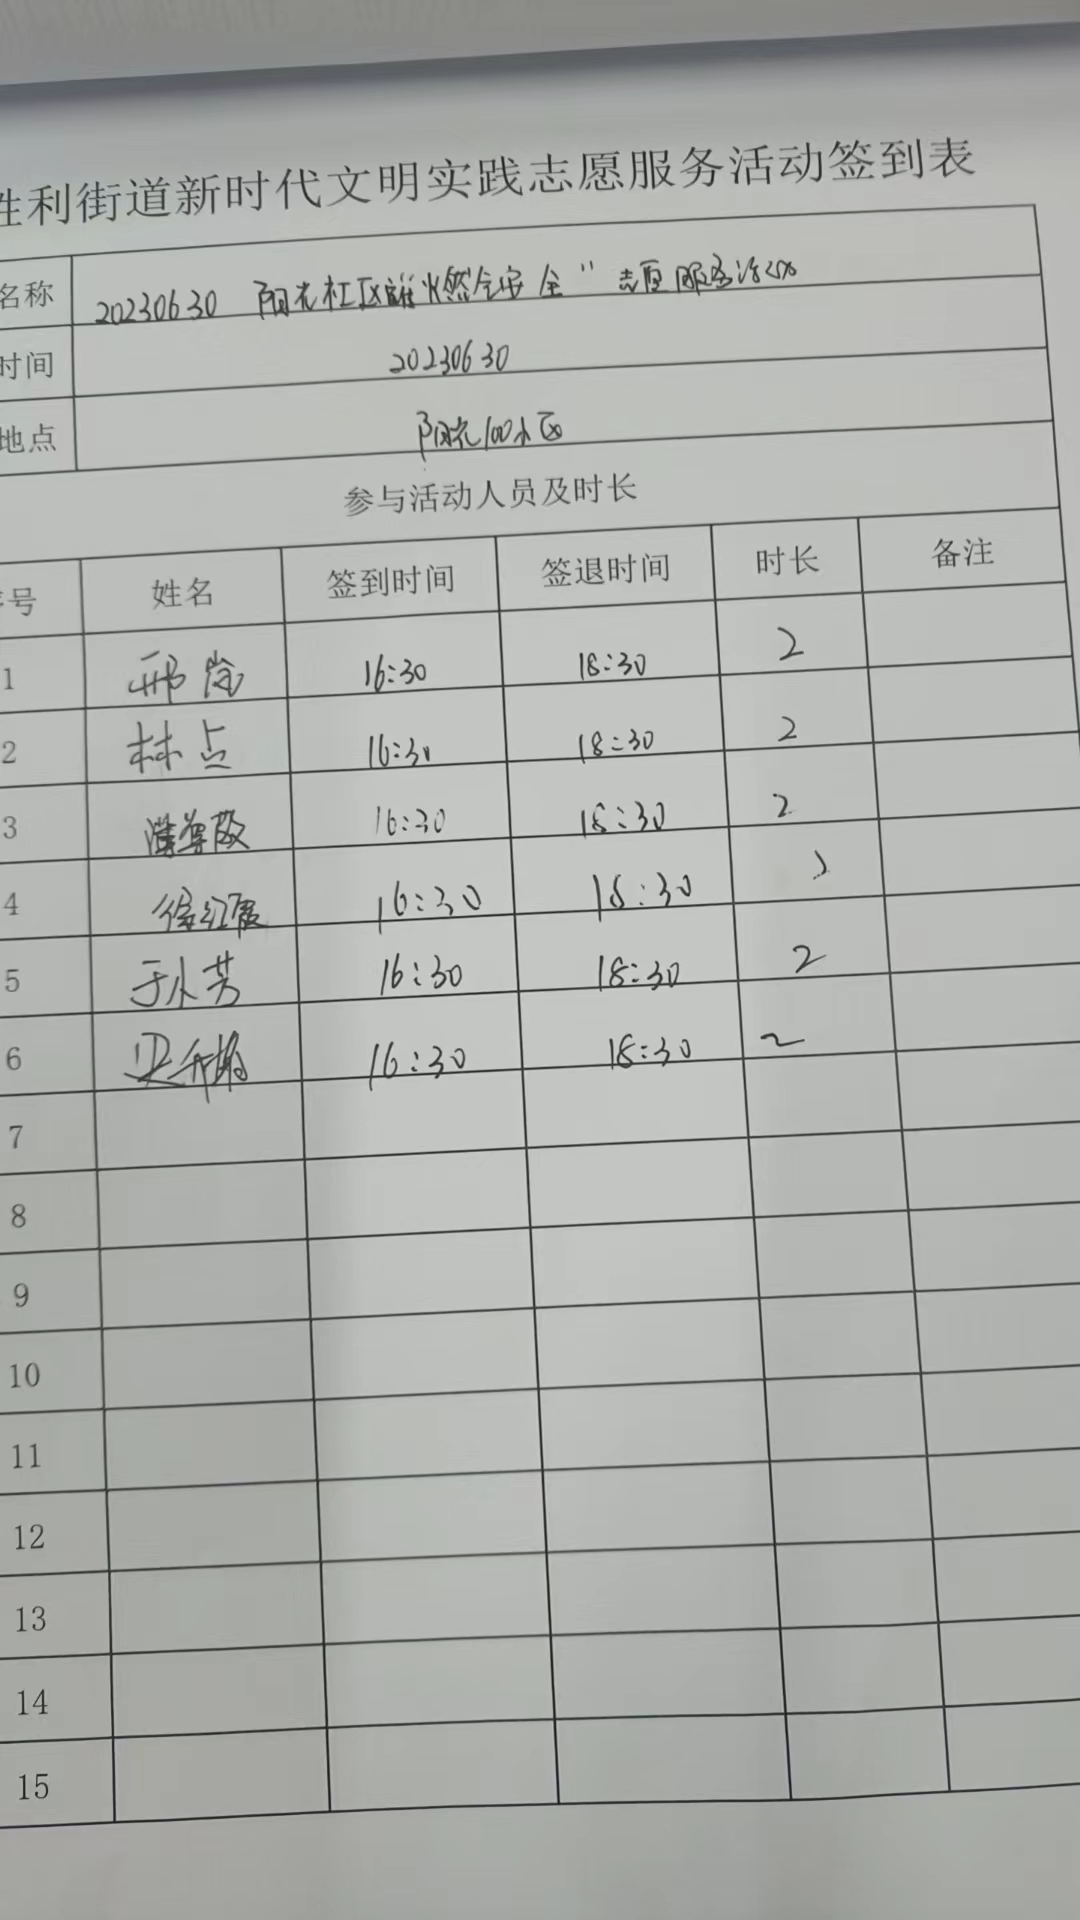 胜利街道新时代文明实践志愿服务活动签到表
名称 20230630 阳光社区 燃气安全" 志愿服务活动
时间 20230630
地点 阳光100小区
参与活动人员及时长
序号 姓名 签到时间 签退时间 时长 备注
1 邢 16:30 18:30 2
2 林点 16:30 18:30 2
3 16:30 18:30 2
4 徐红霞 16:30 18:30
5 于小芳 16:30 18:30 2
6 16:30 18:30 2
7
8
9
10
11
12
13
14
15